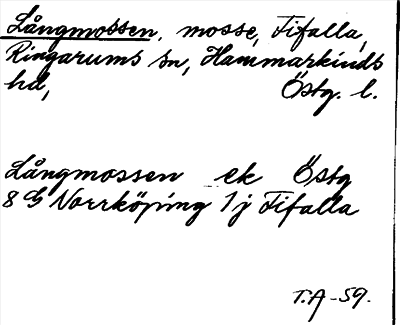 Långmossen, mosse, Fifalla,
Ringarums sn, Hammarkinds
hd, Östg. l.
Långmossen ek Östg
8 G Norrköping 1 j Fifalla
T.A-59.